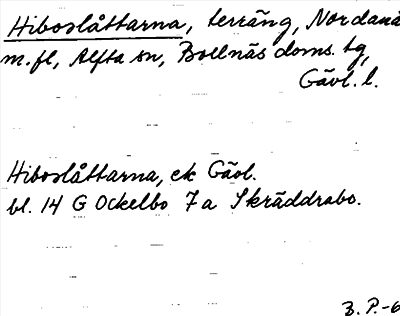 Hiboslåttarna, terräng, Nordanå
m.fl, Alfta sn, Bollnäs doms. tg,
Gävl. l.
Hiboslåttarna, ek Gävl.
bl. 14 G Ockelbo 7 a Skräddrabo.
3. P.-6